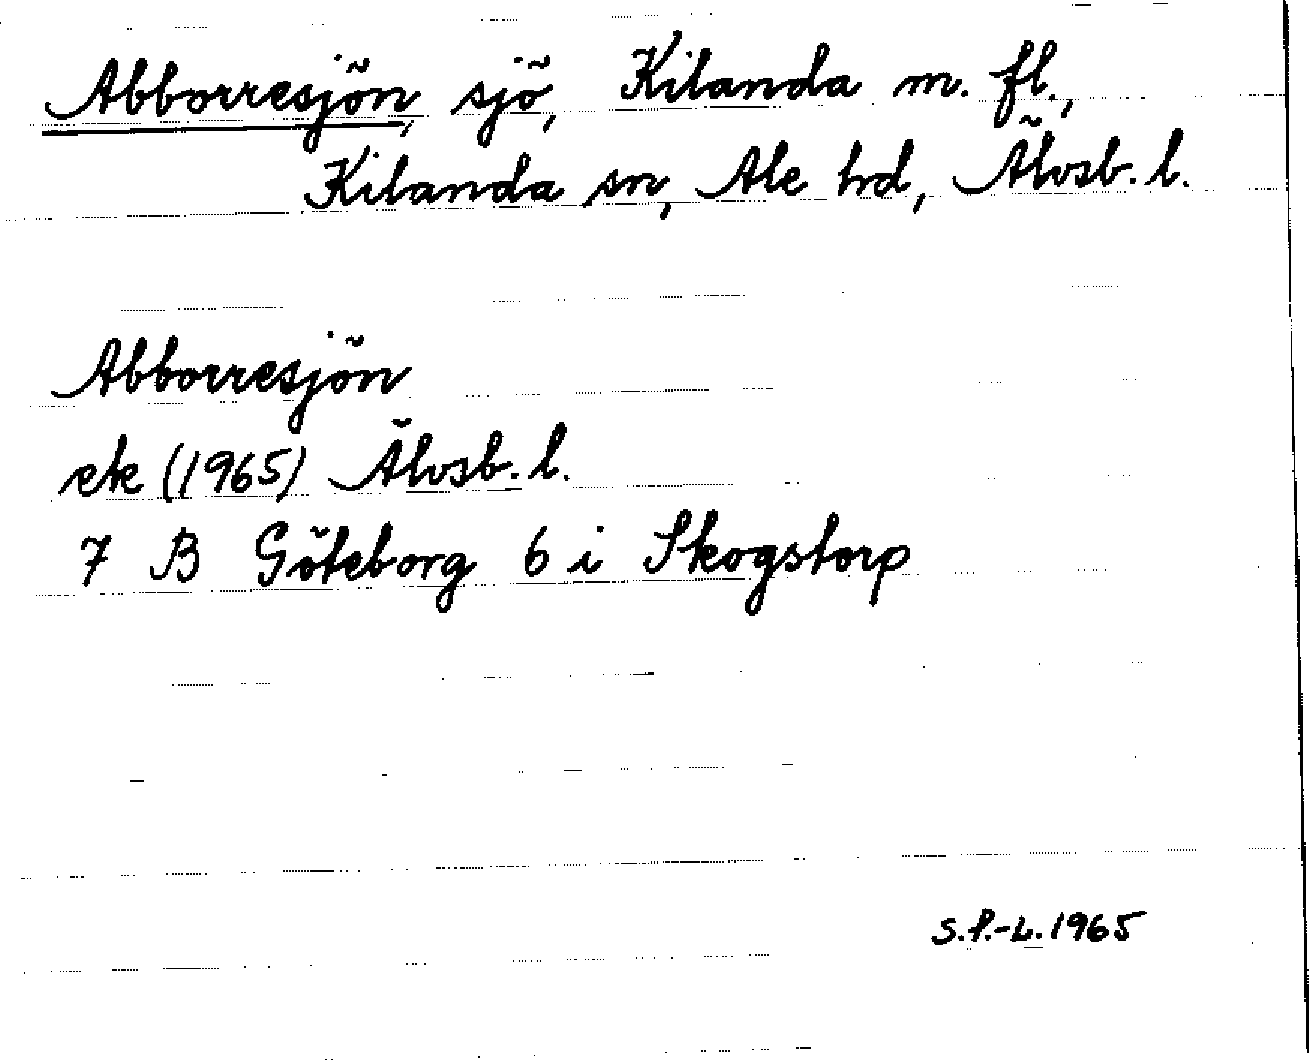 Abborresjön, sjö, Kilanda m. fl.,
Kilanda sn, Ale hd, Älvsb. l.
Abborresjön
ek (1965) Älvsb. l.
7 B Göteborg 6 i Skogstorp
S.P.-L. 1965